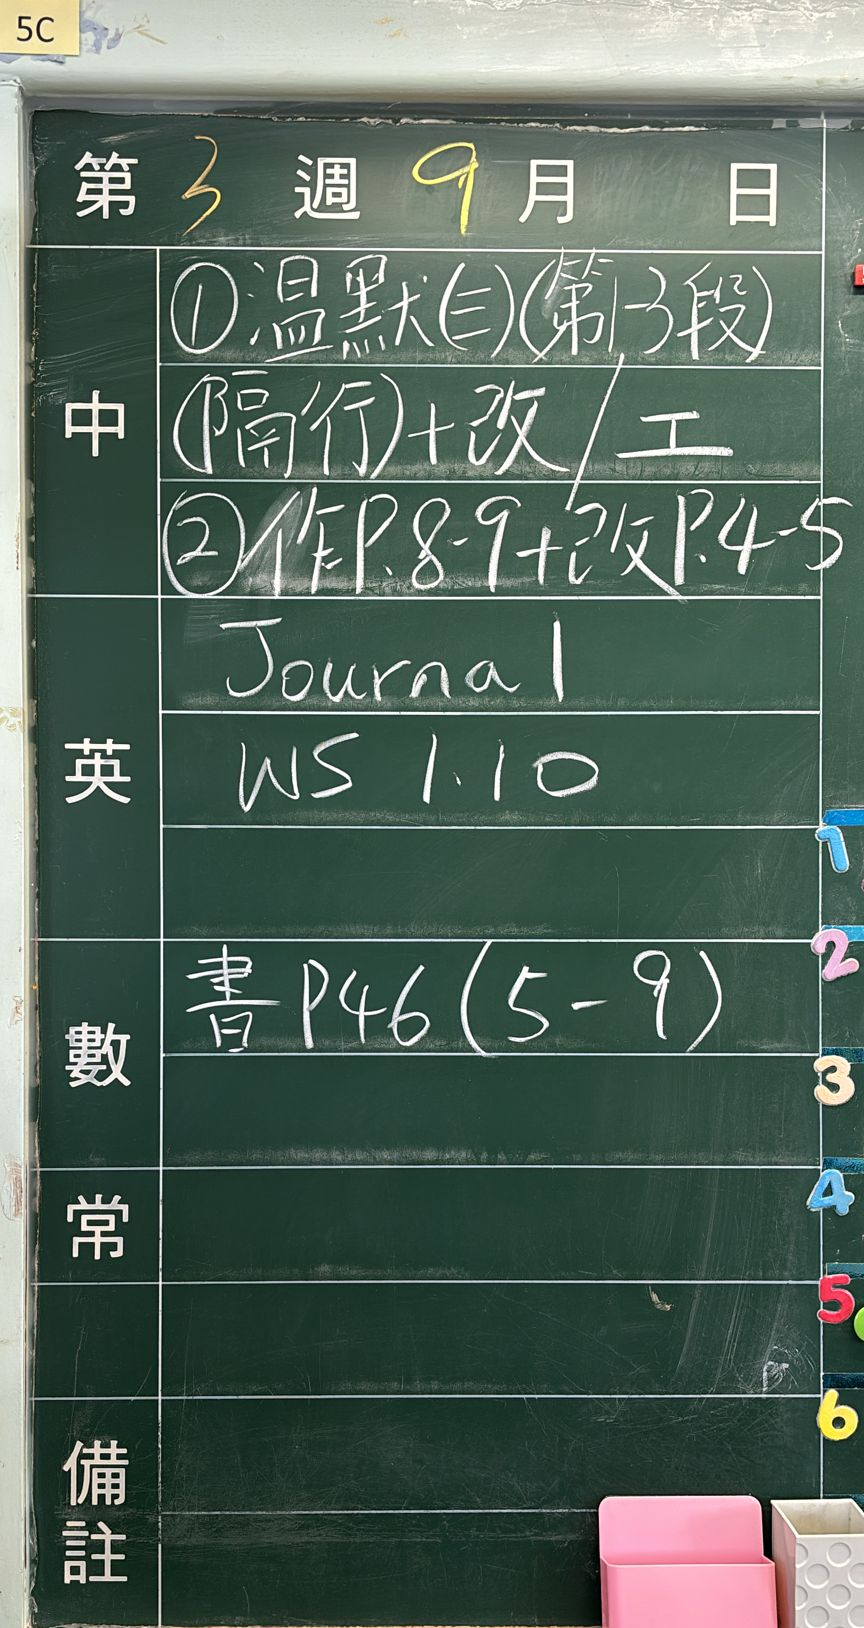 5C
第 3 週 9 月 日
中
①温默(三)(第1-3段)
(隔行)+改/工
②作P.8-9+改P.4-5
英
Journal
WS 1.10
數
書 P46 (5-9)
常
備註
1
2
3
4
5
6